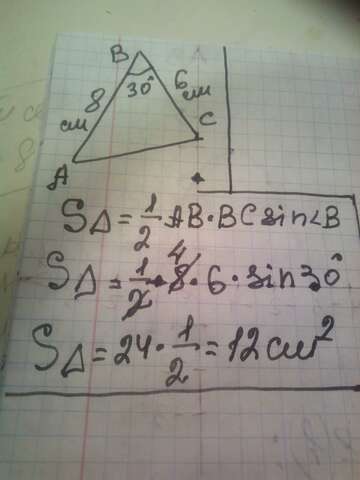 B
8 см
30°
6 см
C
A
S△ = 1/2 AB · BC sin∠B
S△ = 1/2 · 8 · 6 · sin30° 4
S△ = 24 · 1/2 = 12 см²